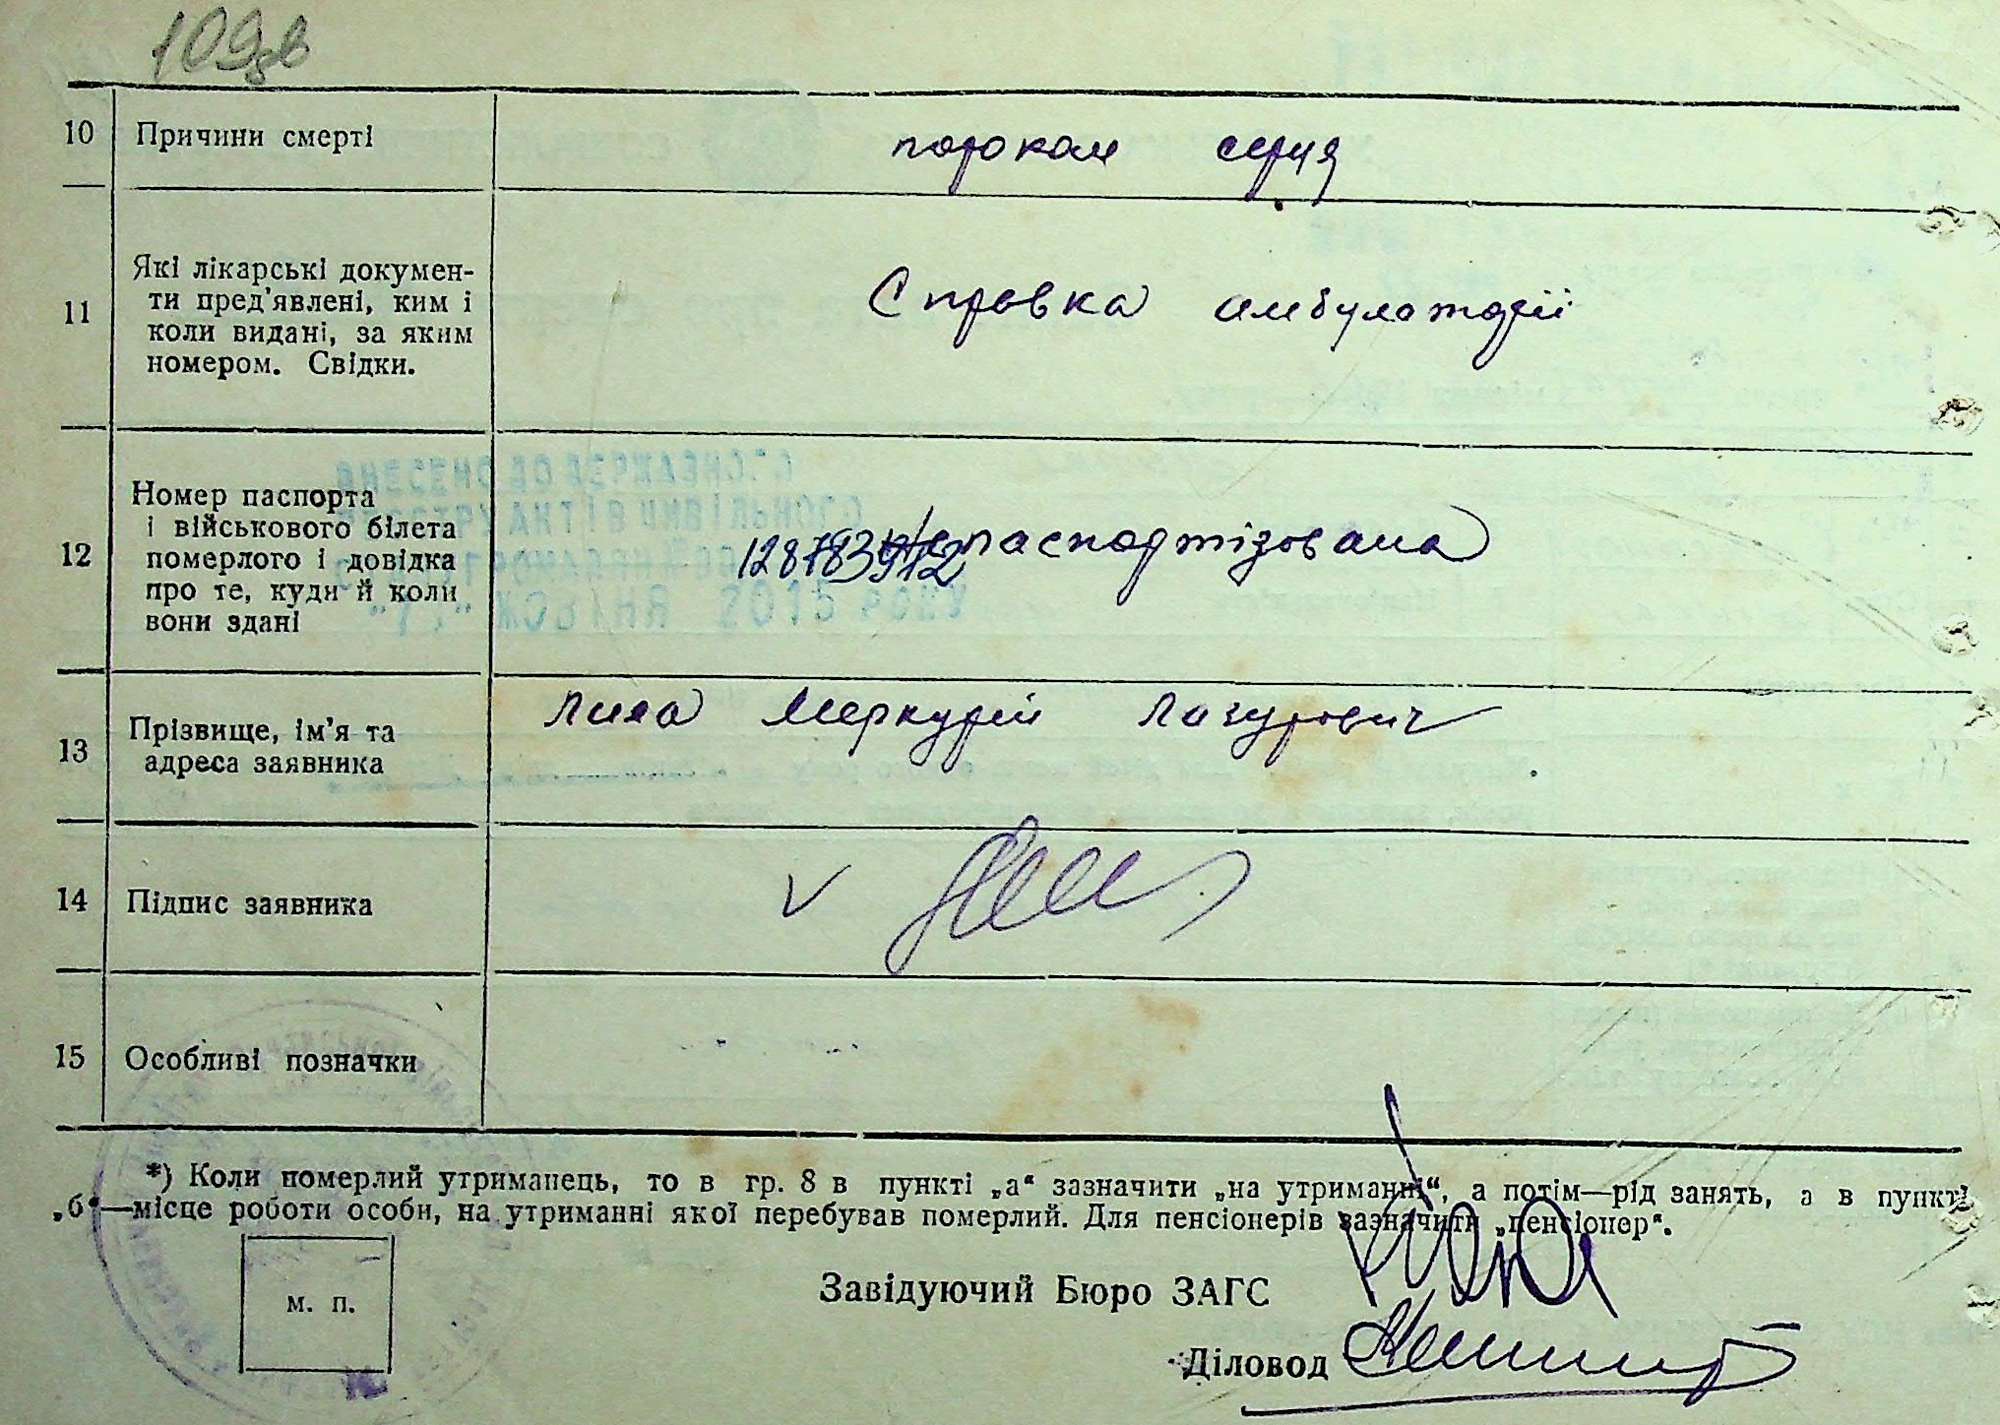 109зв
10 Причини смерті
пороком серця
11 Які лікарські докумен-
ти пред'явлені, ким і
коли видані, за яким
номером. Свідки.
Справка амбулаторії
12 Номер паспорта
і військового білета
померлого і довідка
про те, куди й коли
вони здані
непаспортізована
ВНЕСЕНО ДО ДЕРЖАВНОГО
РЕЄСТРУ АКТІВ ЦИВІЛЬНОГО
ЖОВТНЯ 2015 РОКУ
13 Прізвище, ім'я та
адреса заявника
Меркурій Лазурович
14 Підпис заявника
15 Особливі позначки
*) Коли померлий утриманець, то в гр. 8 в пункті „а“ зазначити „на утриманні“, а потім—рід занять, а в пункті
„б“—місце роботи особи, на утриманні якої перебував померлий. Для пенсіонерів зазначити „пенсіонер“.
м. п.
Завідуючий Бюро ЗАГС
Діловод